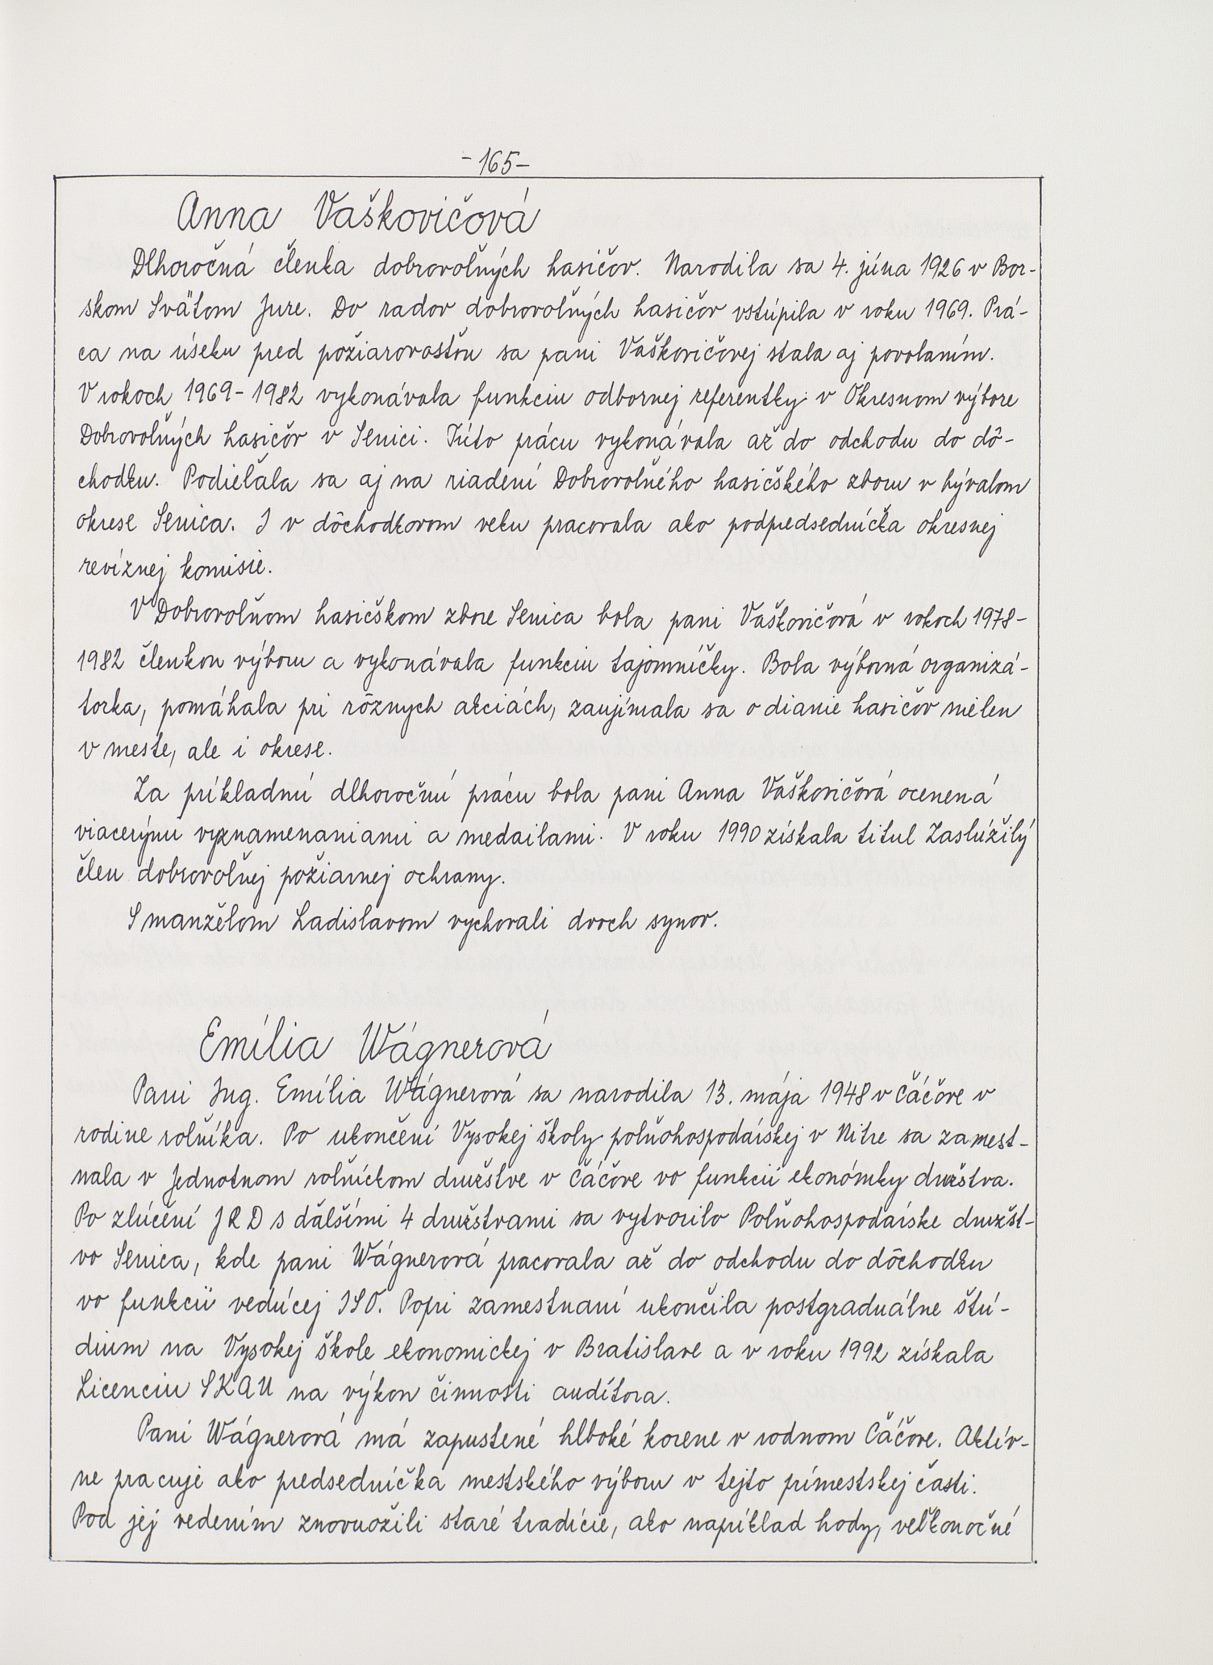 -165-
Anna Vaškovičová
Dlhoročná členka dobrovoľných hasičov. Narodila sa 4. júna 1926 v Bor-
skom Svätom Jure. Do radov dobrovoľných hasičov vstúpila v roku 1969. Prá-
ca na úseku pred požiarovosťou sa pani Vaškovičovej stala aj povolaním.
V rokoch 1969-1982 vykonávala funkciu odbornej referentky v Okresnom výbore
Dobrovoľných hasičov v Senici. Túto prácu vykonávala až do odchodu do dô-
chodku. Podieľala sa aj na riadení Dobrovoľného hasičského zboru v bývalom
okrese Senica. I v dôchodkovom veku pracovala ako podpredsedníčka okresnej
revíznej komisie.
V Dobrovoľnom hasičskom zbore Senica bola pani Vaškovičová v rokoch 1978-
1982 členkou výboru a vykonávala funkciu tajomníčky. Bola výborná organizá-
torka, pomáhala pri rôznych akciách, zaujímala sa o dianie hasičov nielen
v meste, ale i okrese.
Za príkladnú dlhoročnú prácu bola pani Anna Vaškovičová ocenená
viacerými vyznamenaniami a medailami. V roku 1990 získala titul Zaslúžilý
člen dobrovoľnej požiarnej ochrany.
S manželom Ladislavom vychovali dvoch synov.
Emília Wágnerová
Pani Ing. Emília Wágnerová sa narodila 13. mája 1948 v Čáčove v
rodine roľníka. Po ukončení Vysokej školy poľnohospodárskej v Nitre sa zamest-
nala v Jednotnom roľníckom družstve v Čáčove vo funkcii ekonómky družstva.
Po zlúčení JRD s ďalšími 4 družstvami sa vytvorilo Poľnohospodárske družst-
vo Senica, kde pani Wágnerová pracovala až do odchodu do dôchodku
vo funkcii vedúcej ISO. Popri zamestnaní ukončila postgraduálne štú-
dium na Vysokej škole ekonomickej v Bratislave a v roku 1992 získala
Licenciu SKAU na výkon činnosti audítora.
Pani Wágnerová má zapustené hlboké korene v rodnom Čáčove. Aktív-
ne pracuje ako predsedníčka mestského výboru v tejto prímestskej časti.
Pod jej vedením znovuožili staré tradície, ako napríklad hody, veľkonočné